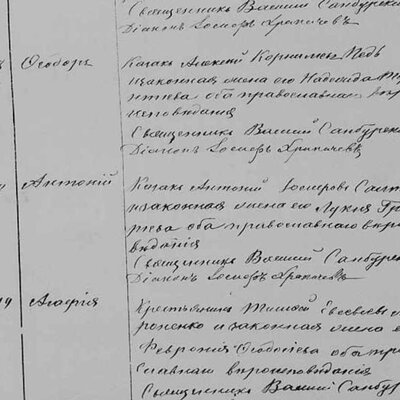 Священникъ Василій Санбурск
Діаконъ Іосифъ Храпачевъ
Ѳеодоръ
Козакъ Алексѣй Корниліевъ Педь
и законная жена его Надежда
ѳеева оба православнаго
исповѣданія
Священникъ Василій Санбурск
Діаконъ Іосифъ Храпачевъ
Антоній
Козакъ Антоній Іосифовъ
и законная жена его Лукія Гри
рьева оба православнаго вѣро
вѣданія
Священникъ Василій Санбурск
Діаконъ Іосифъ Храпачевъ
19 Агафія
Крестьянинъ Тимоѳей Евсевіев
ренко и законная жена е
Февронія Ѳеодотіева оба пра
славнаго вѣроисповѣданія
Священникъ Василій Санбур